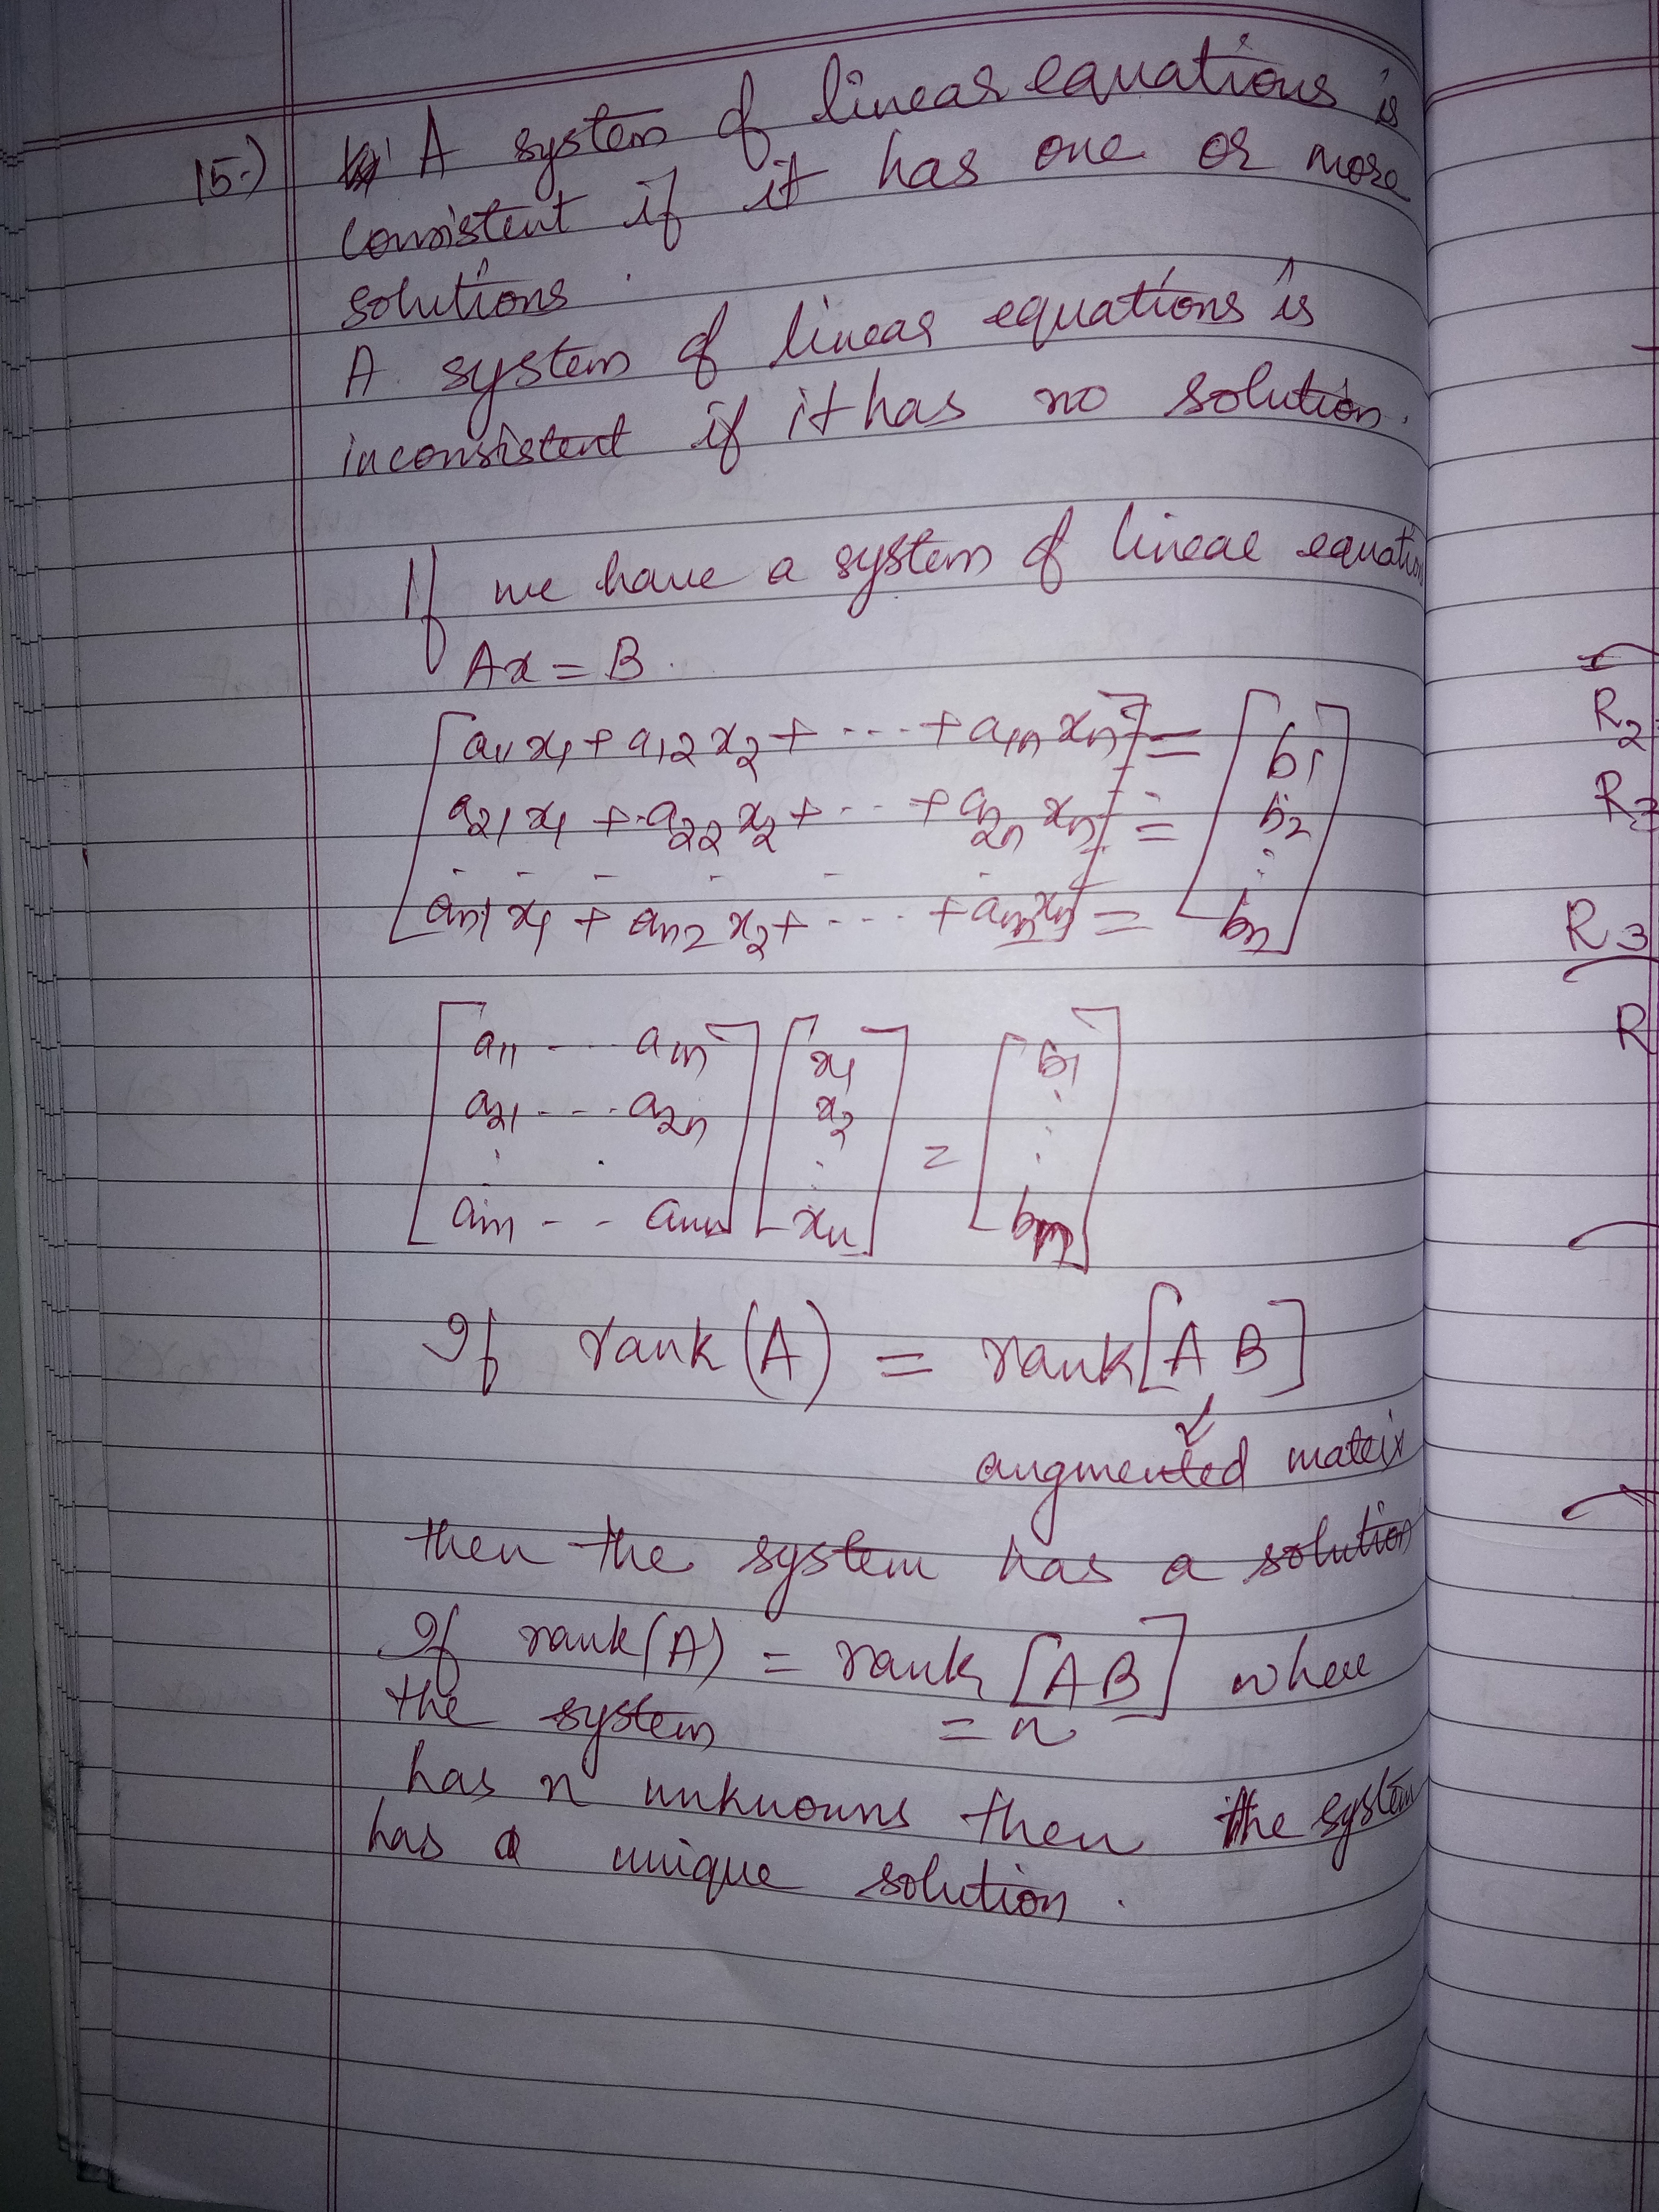 15.) A system of linear equations is
consistent if it has one or more
solutions.
A system of linear equations is
inconsistent if it has no solution.
If we have a system of linear equation
Ax = B.
[a11 x1 + a12 x2 + --- + a1n xn] = [b1
a21 x1 + a22 x2 + --- + a2n xn = b2
- - - - - - :
an1 x1 + an2 x2 + --- + ann xn] = bn]
[a11 --- a1n] [x1 = [b1
a21 --- a2n x2 .
: . : .
-- ann] xn] bn]
If rank(A) = rank[A B]
augmented matrix
then the system has a solution
If rank(A) = rank [A B] where
the system = n
has n unknowns then the system
has a unique solution.
R2
R3
R3
R